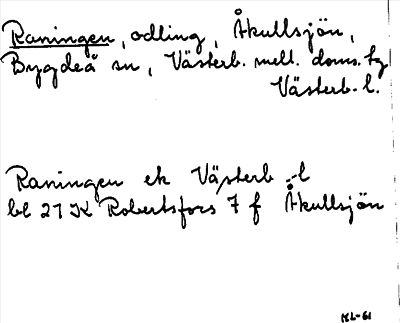 Raningen, odling, Åkullsjön,
Bygdeå sn, Västerb. mell. doms. tg
Västerb. l.
Raningen ek Västerb.-l
bl 21 K Robertsfors 7 f Åkullsjön
ML-61